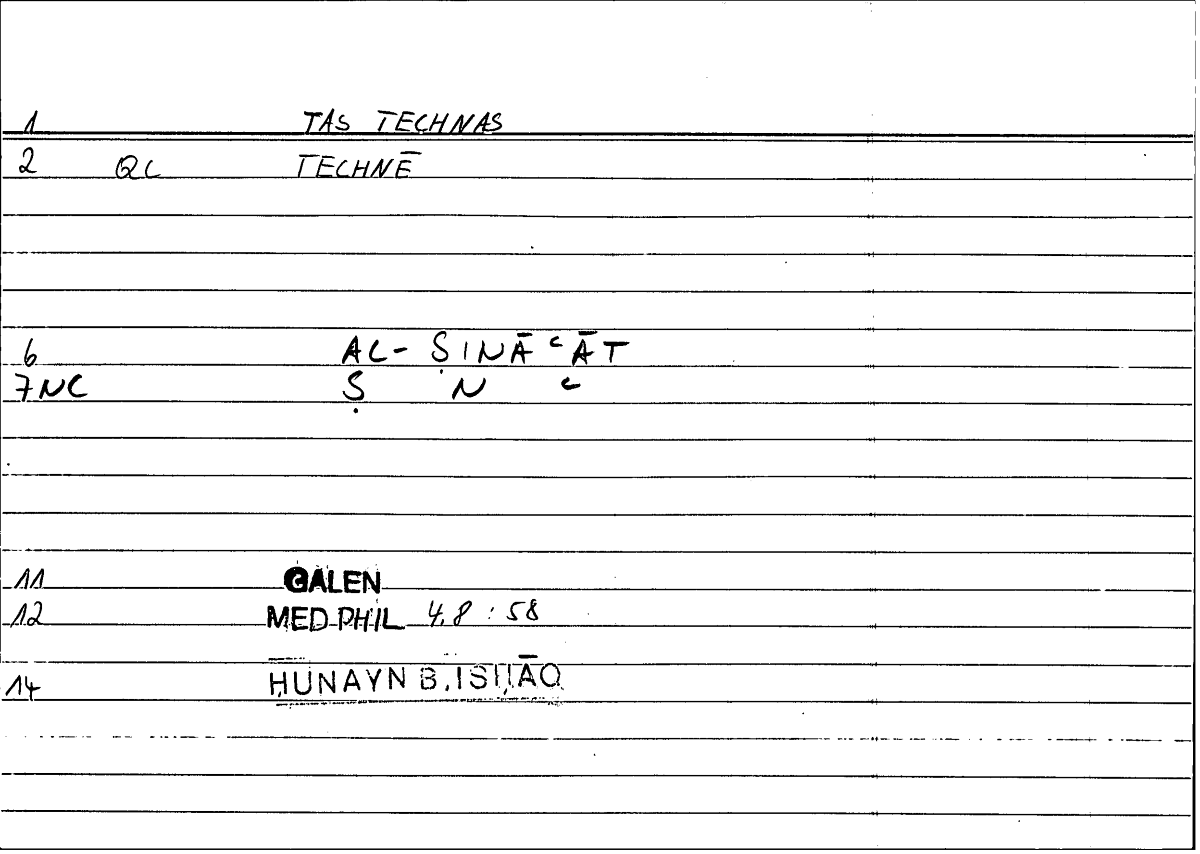 1 TAS TECHNAS
2 QC TECHNĒ
6 AL-ṢINĀʿĀT
7NC Ṣ N ʿ
11 GALEN
12 MED PHIL 4,8 : 58
14 ḤUNAYN B. ISḤĀQ